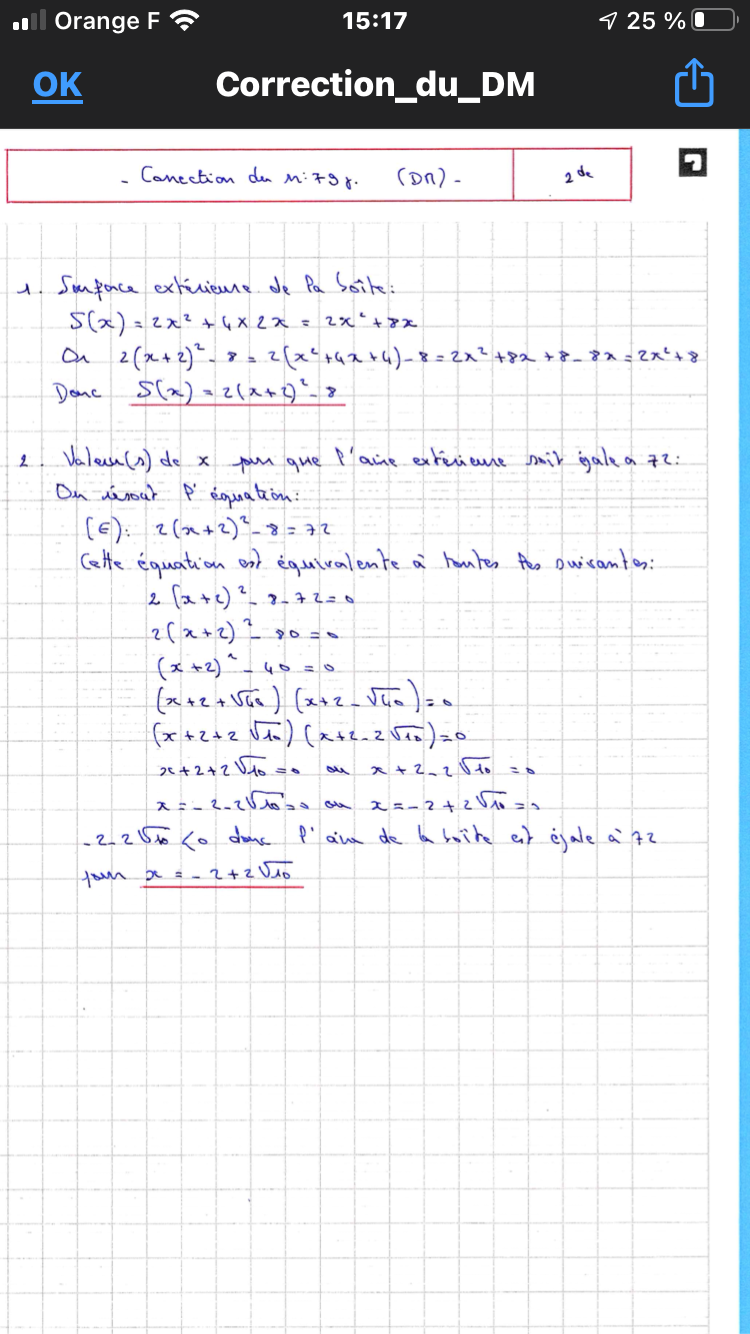 Orange F 15:17 25 %
OK Correction_du_DM
- Correction du n: 79 p. (DM) - 2de
1. Surface extérieure de la boîte:
S(x) = 2x² + 4 × 2x = 2x² + 8x
Or 2(x+2)² - 8 = 2(x² + 4x + 4) - 8 = 2x² + 8x + 8 - 8x = 2x² + 8
Donc S(x) = 2(x+2)² - 8
2. Valeur(s) de x pour que l'aire extérieure soit égale à 72:
On résout l'équation:
(E): 2(x+2)² - 8 = 72
Cette équation est équivalente à toutes les suivantes:
2(x+2)² - 8 - 72 = 0
2(x+2)² - 80 = 0
(x+2)² - 40 = 0
(x+2+√40)(x+2-√40) = 0
(x+2+2√10)(x+2-2√10) = 0
x+2+2√10 = 0 ou x+2-2√10 = 0
x = -2-2√10 = 0 ou x = -2+2√10 = 0
-2-2√10 < 0 donc l'aire de la boîte est égale à 72
pour x = -2+2√10